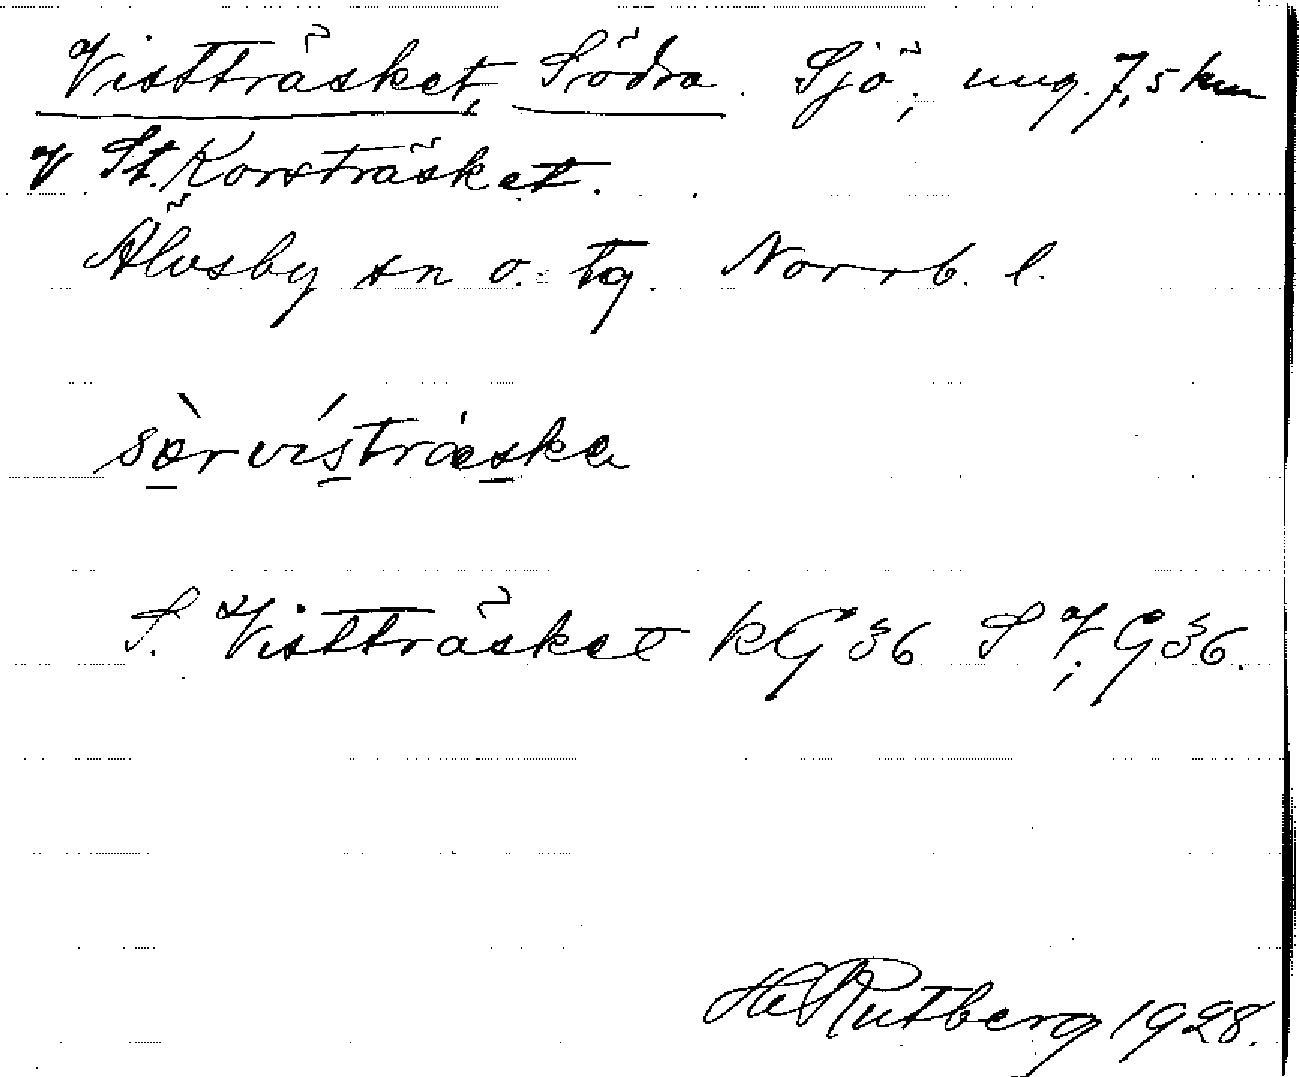 Vistträsket, Södra. Sjö, ung. 7,5 km
V St. Korsträsket.
Älvsby sn o. tg. Norrb. l.
sὰrvístrǽska
S. Vistträsket kG36 S V, G36.
H Rutberg 1928.